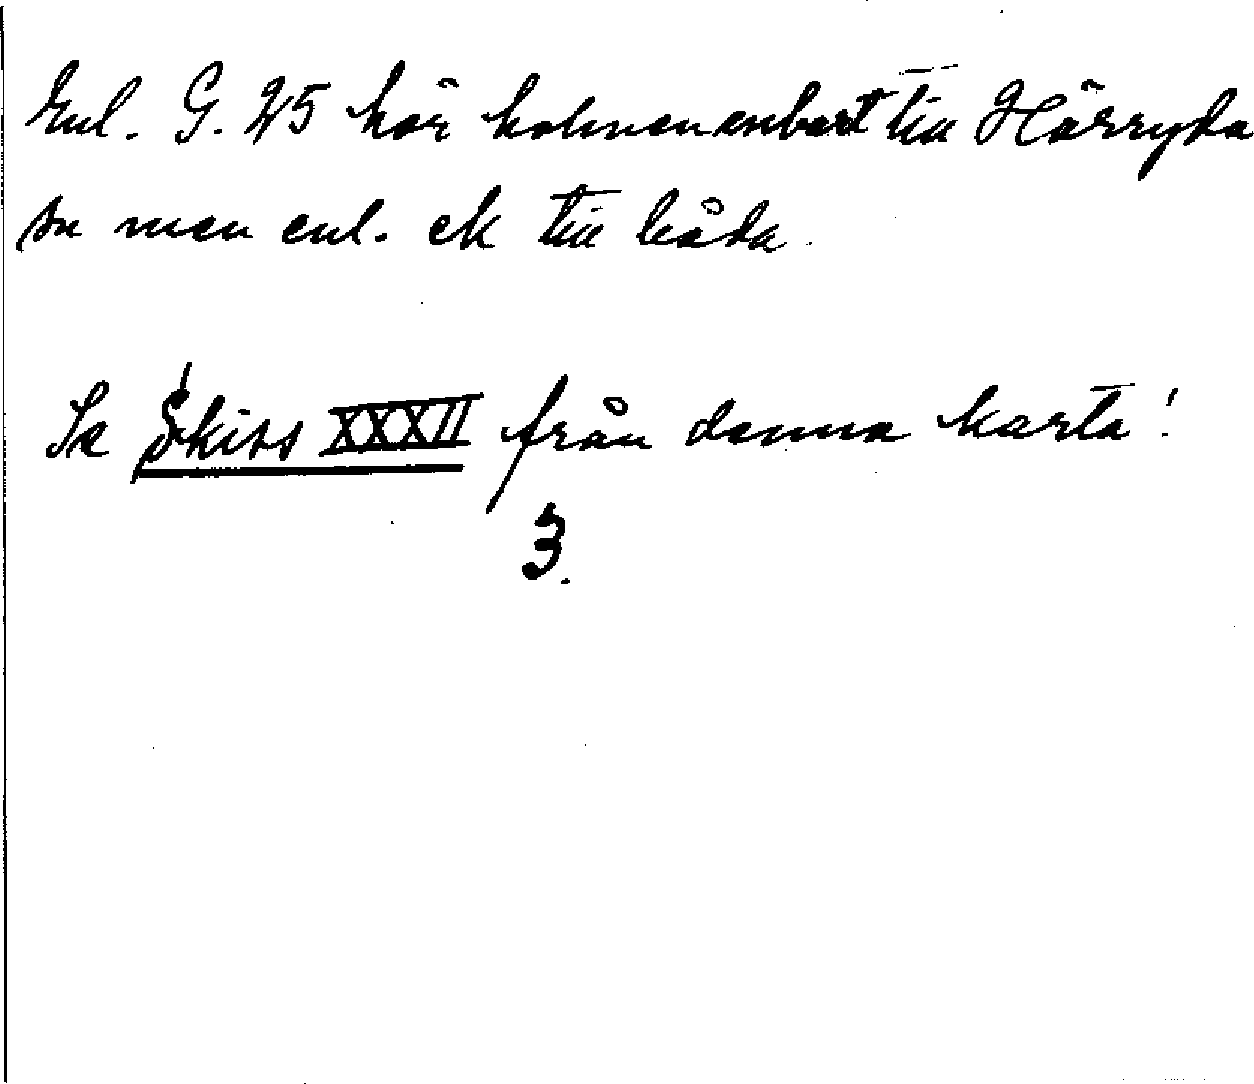 Enl. G. 45 hör holmen enbart till Härryda
sn men enl. ek till båda.
Se Skiss XXXII från denna karta!
3.